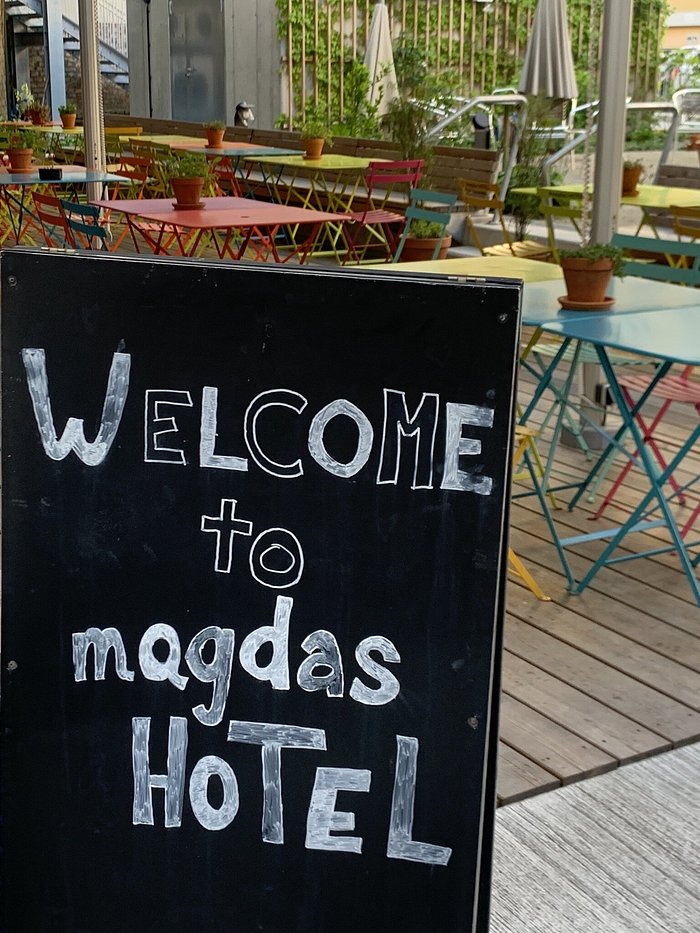 WELCOME
to
magdas
HOTEL